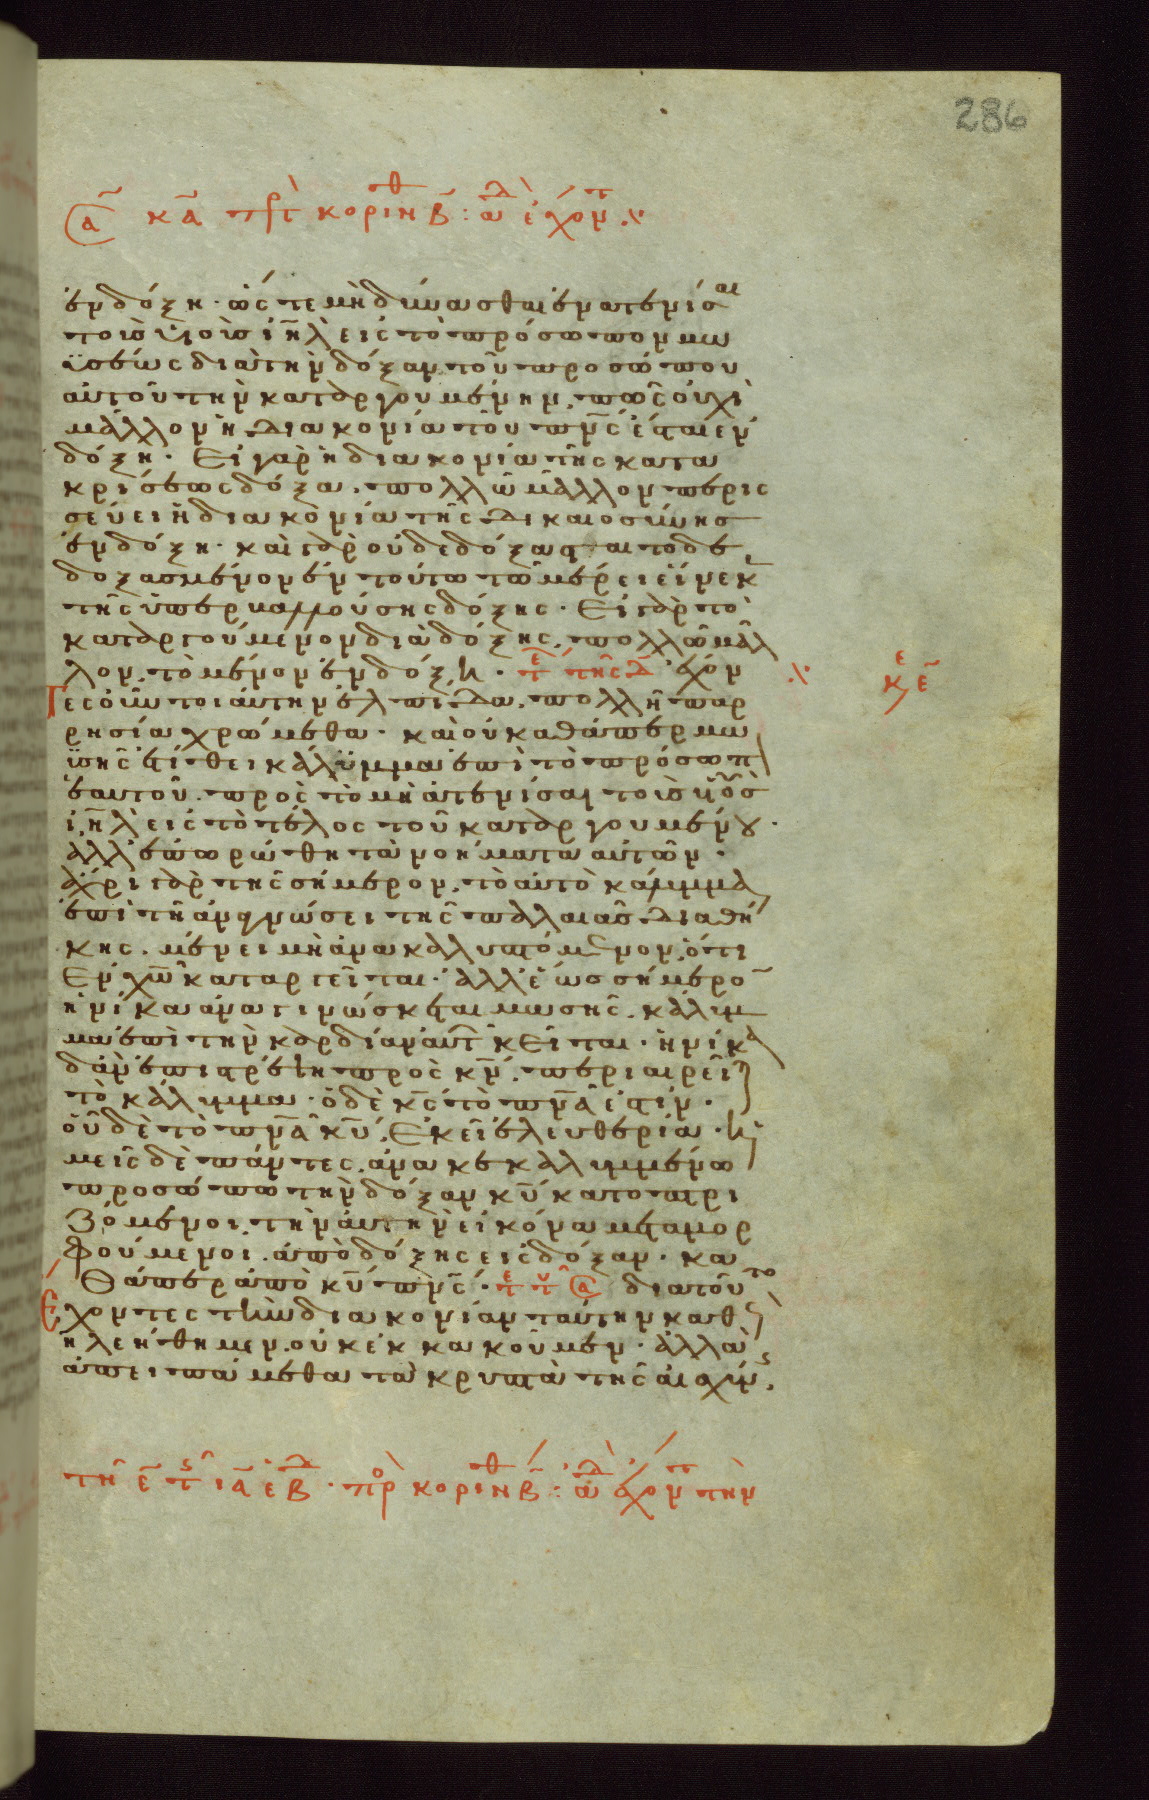 286
Σα κα πρ κοριν β : αδ έχοντ
ἐν δόξη · ὥστε μὴ δύνασθαι ἀτενίσαι
τοὺς υἱοὺς ιηλ εἰς τὸ πρόσωπον μω
ϋσέως διὰ τὴν δόξαν τοῦ προσώπου
αὐτοῦ τὴν καταργουμένην, πῶς οὐχὶ
μᾶλλον ἡ διακονία τοῦ πνς ἔσται ἐν
δόξη · Εἰ γὰρ ἡ διακονία τῆς κατα
κρίσεως δόξα, πολλῶ μᾶλλον περισ
σεύει ἡ διακονία τῆς δικαιοσύνης
ἐν δόξη · καὶ γὰρ οὐδὲ δόξασται τὸ δε
δοξασμένον ἐν τούτω τῶ μέρει εἵνεκ
τῆς ὑπερβαλλούσης δόξης · Εἰ γὰρ τὸ
καταργούμενον διὰ δόξης, πολλῶ μᾶλ
λον, τὸ μένον ἐν δόξη · τε τῆς δ ἔχον
κε ε
τες οὖν τοιαύτην ἐλπίδα, πολλῆ παρ
ρησία χρώμεθα · καὶ οὐ καθάπερ μω
ϋσῆς ἐτίθει κάλυμμα ἐπὶ τὸ πρόσωπ
ἑαυτοῦ, πρὸς τὸ μὴ ἀτενίσαι τοὺς υἱοὺς
ιηλ εἰς τὸ τέλος τοῦ καταργουμένου ·
ἀλλ' ἐπωρώθη τὰ νοήματα αὐτῶν ·
ἄχρι γὰρ τῆς σήμερον, τὸ αὐτὸ κάλυμμα
ἐπὶ τῆ ἀναγνώσει τῆς παλαιᾶς διαθή
κης, μένει μὴ ἀνακαλυπτόμενον, ὅτι
Ἐν χω καταργεῖται · ἀλλ' ἕως σήμερον
ἡνίκα ἀναγινώσκεται μωσῆς, κάλυμ
μα ἐπὶ τὴν καρδίαν αὐτ κεῖται · ἡνίκα
δ' ἂν ἐπιστρέψη πρὸς κν, περιαιρεῖτ
τὸ κάλυμμα · ὁ δὲ κς τὸ πνα ἐστιν ·
οὗ δὲ τὸ πνα κυ, ἐκεῖ ἐλευθερία · ἡ
μεῖς δὲ πάντες, ἀνακεκαλυμμένω
προσώπω τὴν δόξαν κυ κατοπτρι
ζόμενοι, τὴν αὐτὴν εἰκόνα μεταμορ
φούμενοι ἀπὸ δόξης εἰς δόξαν · κα
θάπερ ἀπὸ κυ πνς · τε τυ Σα διὰ τοῦτο
ἔχοντες τὴν διακονίαν ταύτην καθ
ἠλεήθημεν, οὐκ ἐκκακοῦμεν · ἀλλὰ
ἀπειπάμεθα τὰ κρυπτὰ τῆς αἰσχύν
τῆ ε τ ια ἑβδ · πρ κοριν β : ἀδ ἔχοντ τὴν